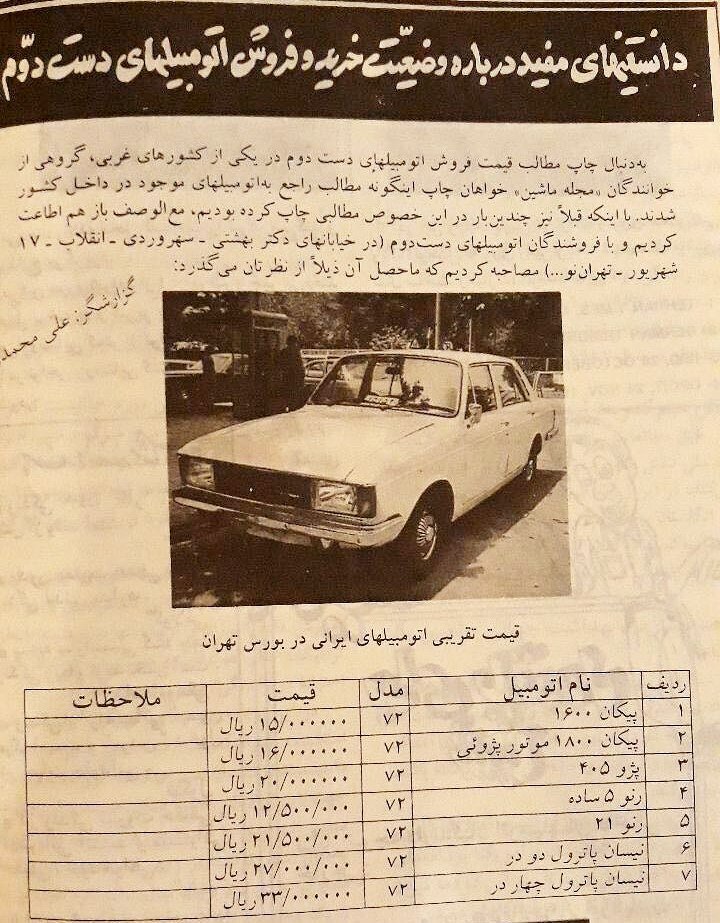 دانستنیهای مفید درباره وضعیّت خرید و فروش اتومبیلهای دست دوّم
به‌دنبال چاپ مطالب قیمت فروش اتومبیلهای دست دوم در یکی از کشورهای غربی، گروهی از
خوانندگان «مجله ماشین» خواهان چاپ اینگونه مطالب راجع به‌اتومبیلهای موجود در داخل کشور
شدند. با اینکه قبلاً نیز چندین‌بار در این خصوص مطالبی چاپ کرده بودیم، مع‌الوصف باز هم اطاعت
کردیم و با فروشندگان اتومبیلهای دست‌دوم (در خیابانهای دکتر بهشتی ـ سهروردی ـ انقلاب ـ ۱۷
شهریور ـ تهران‌نو...) مصاحبه کردیم که ماحصل آن ذیلاً از نظرتان می‌گذرد:
گزارشگر: علی
قیمت تقریبی اتومبیلهای ایرانی در بورس تهران
ردیف نام اتومبیل مدل قیمت ملاحظات
۱ پیکان ۱۶۰۰ ۷۲ ۱۵/۰۰۰۰۰۰ ریال
۲ پیکان ۱۸۰۰ موتور پژوئی ۷۲ ۱۶/۰۰۰۰۰۰ ریال
۳ پژو ۴۰۵ ۷۲ ۲۰/۰۰۰۰۰۰ ریال
۴ رنو ۵ ساده ۷۲ ۱۲/۵۰۰/۰۰۰ ریال
۵ رنو ۲۱ ۷۲ ۲۱/۵۰۰/۰۰۰ ریال
۶ نیسان پاترول دو در ۷۲ ۲۷/۰۰۰/۰۰۰ ریال
۷ نیسان پاترول چهار در ۷۲ ۳۳/۰۰۰۰۰۰ ریال